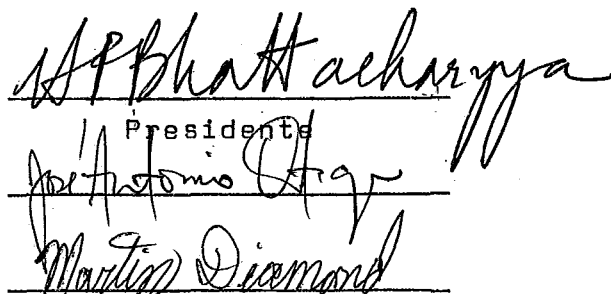 Bhattacharyya
Presidente
José Antonio
Martin Diamond